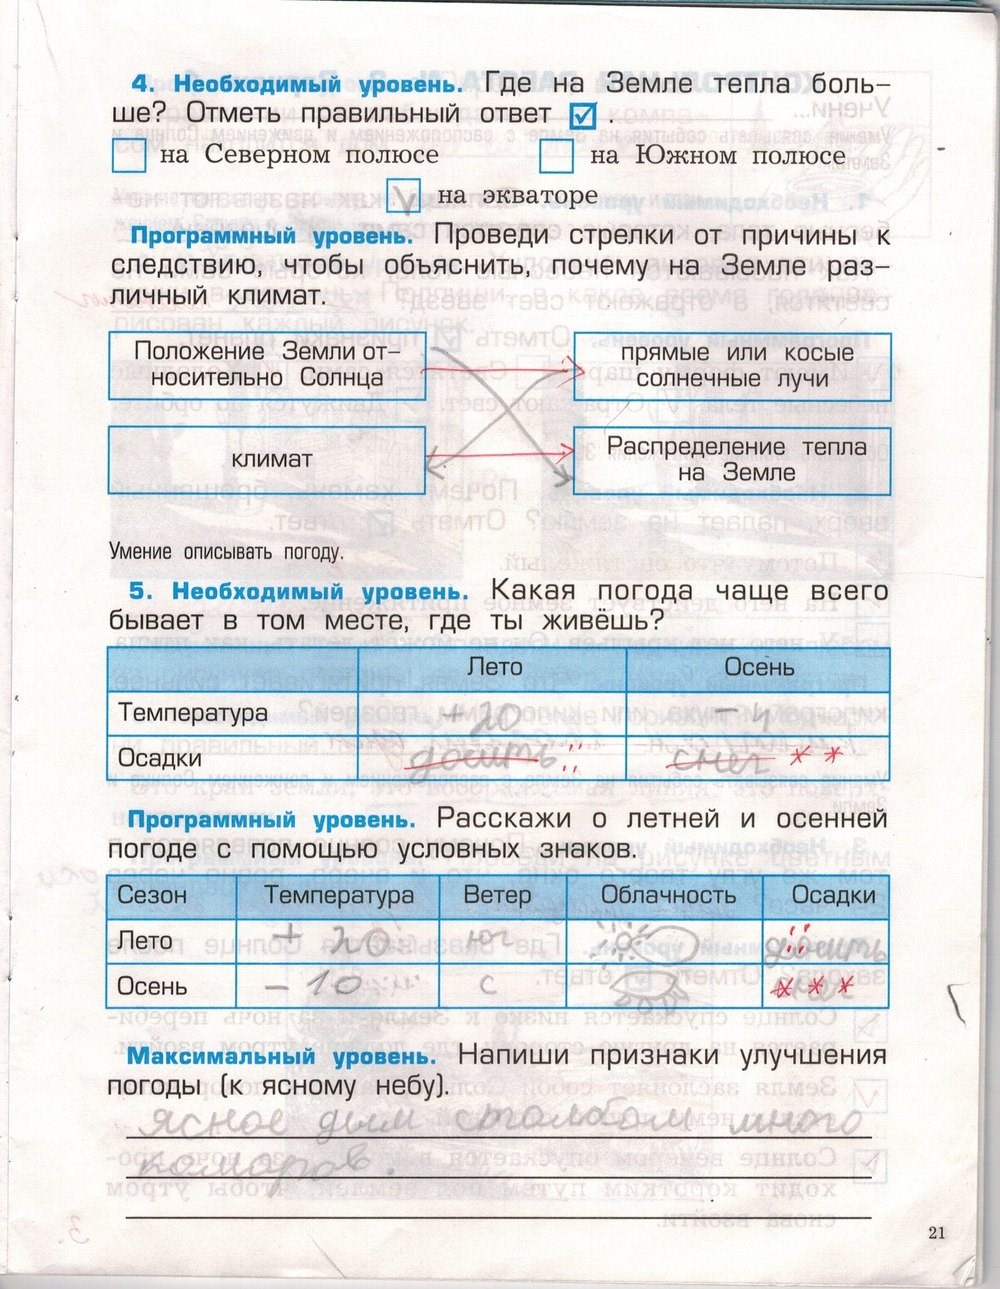 4. Необходимый уровень. Где на Земле тепла боль-
ше? Отметь правильный ответ ☑ .
на Северном полюсе на Южном полюсе
V на экваторе
Программный уровень. Проведи стрелки от причины к
следствию, чтобы объяснить, почему на Земле раз-
личный климат.
Положение Земли от-
носительно Солнца
прямые или косые
солнечные лучи
климат
Распределение тепла
на Земле
Умение описывать погоду.
5. Необходимый уровень. Какая погода чаще всего
бывает в том месте, где ты живёшь?
Лето Осень
Температура +20 -4
Осадки снег
Программный уровень. Расскажи о летней и осенней
погоде с помощью условных знаков.
Сезон Температура Ветер Облачность Осадки
Лето + 20 юг
Осень - 10 с снег
Максимальный уровень. Напиши признаки улучшения
погоды (к ясному небу).
ясное дым столбом много
комаров.
21